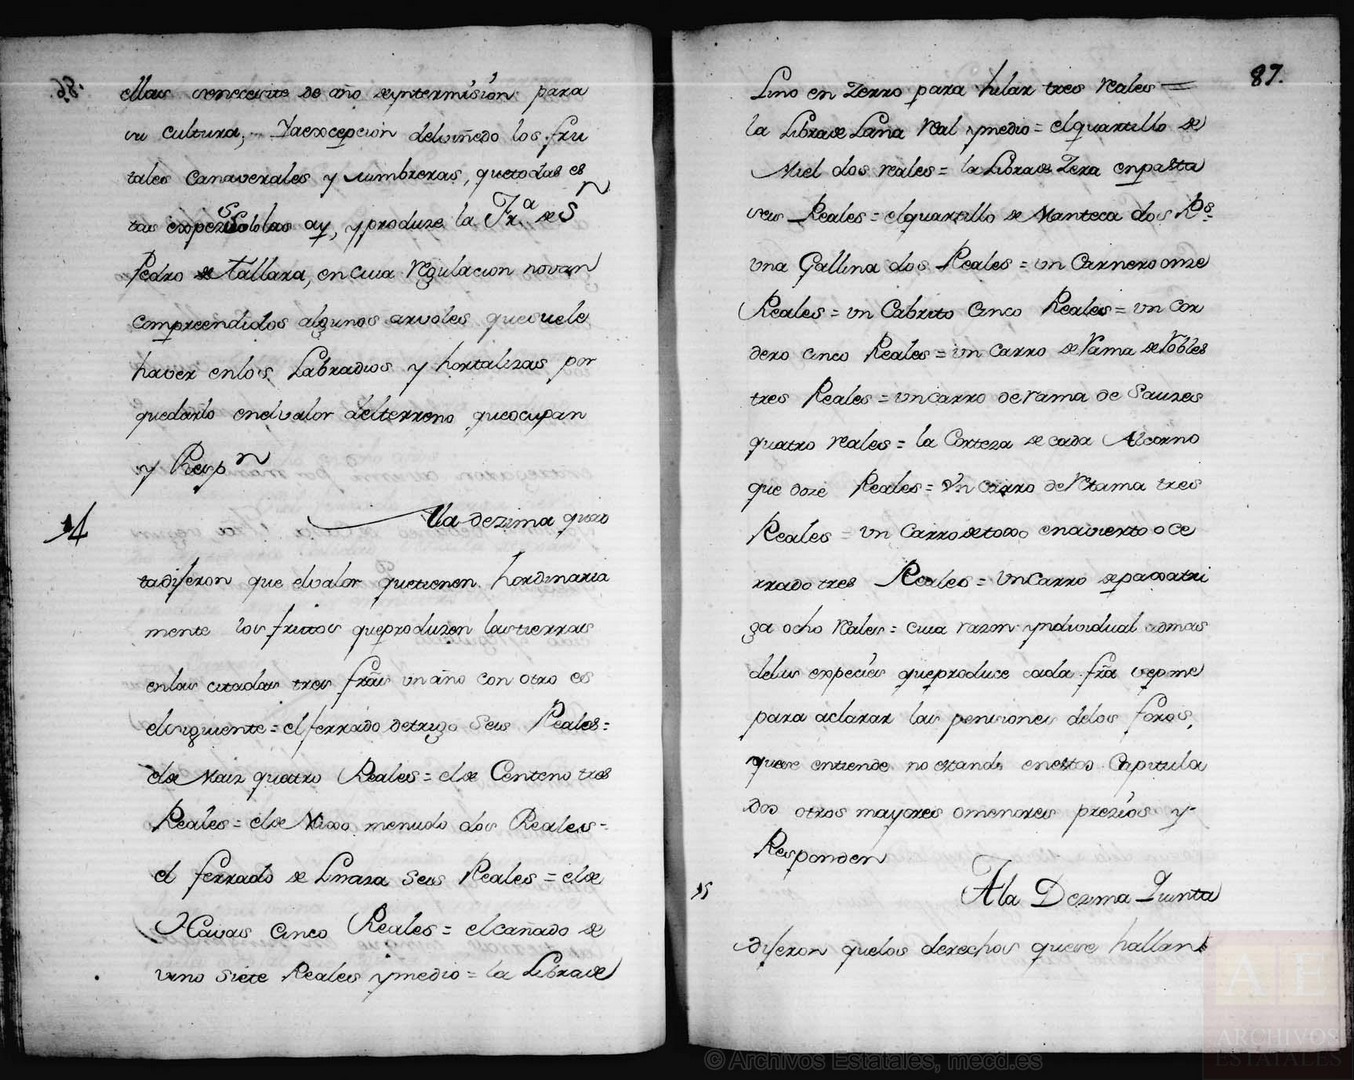 ellas se necesite de año de yntermision para
su cultura, Yaexcepcion delviñedo los fru
tales Canaverales y sumbreras, quetodas es
tas expezies solas ay, yproduze la Frª de Sn
Pedro de Tallara, encuia regulacion novan
compreendidos algunos arvoles quesuele
haver enlos Labradios y hortalizas por
quedarlo enelvalor delterreno queocupan
y Respn
14
Ala dezima quar
tadijeron que elvalor quetienen hordinaria
mente los frutos queproduzen lastierras
enlas citadas tres frãs unaño con otro es
elsiguiente = elferrado detrigo seis Reales =
elde Maiz quatro Reales = elde Centeno tres
Reales = elde Mixo menudo dos Reales =
el ferrado de Linaza seis Reales = elde
Havas cinco Reales = elcañado de
vino siete Reales ymedio = la Librade
87.
Lino en Zerro para hilar tres reales =
la Librade Lana real ymedio = elquartillo de
Miel dos reales = la Librade Zera enpasta
seis Reales = elquartillo de Manteca dos Rs.
una Gallina dos Reales = un Carnero onze
Reales = un Cabrito Cinco Reales = un Cor
dero cinco Reales = un Carro de Rama de Robles
tres Reales = uncarro derama de Sauzes
quatro reales = la Corteza de cada Alcorno
que doze Reales = Un carro deRetama tres
Reales = un Carrodetoxo enavierto o ce
rrado tres Reales = Uncarro depaxatri
ga ocho Reales = cuia razon yndividual
delas expecies queproduce cada frã sepone
para aclarar las pensiones delos foros,
quese entiende no estando enestos Capitula
dos otros mayores omenores prezios y
Responden
15
Ala Dezima Quinta
dijeron quelos derechos quese hallan
© Archivos Estatales, mecd.es
AE
ARCHIVOS
ESTATALES